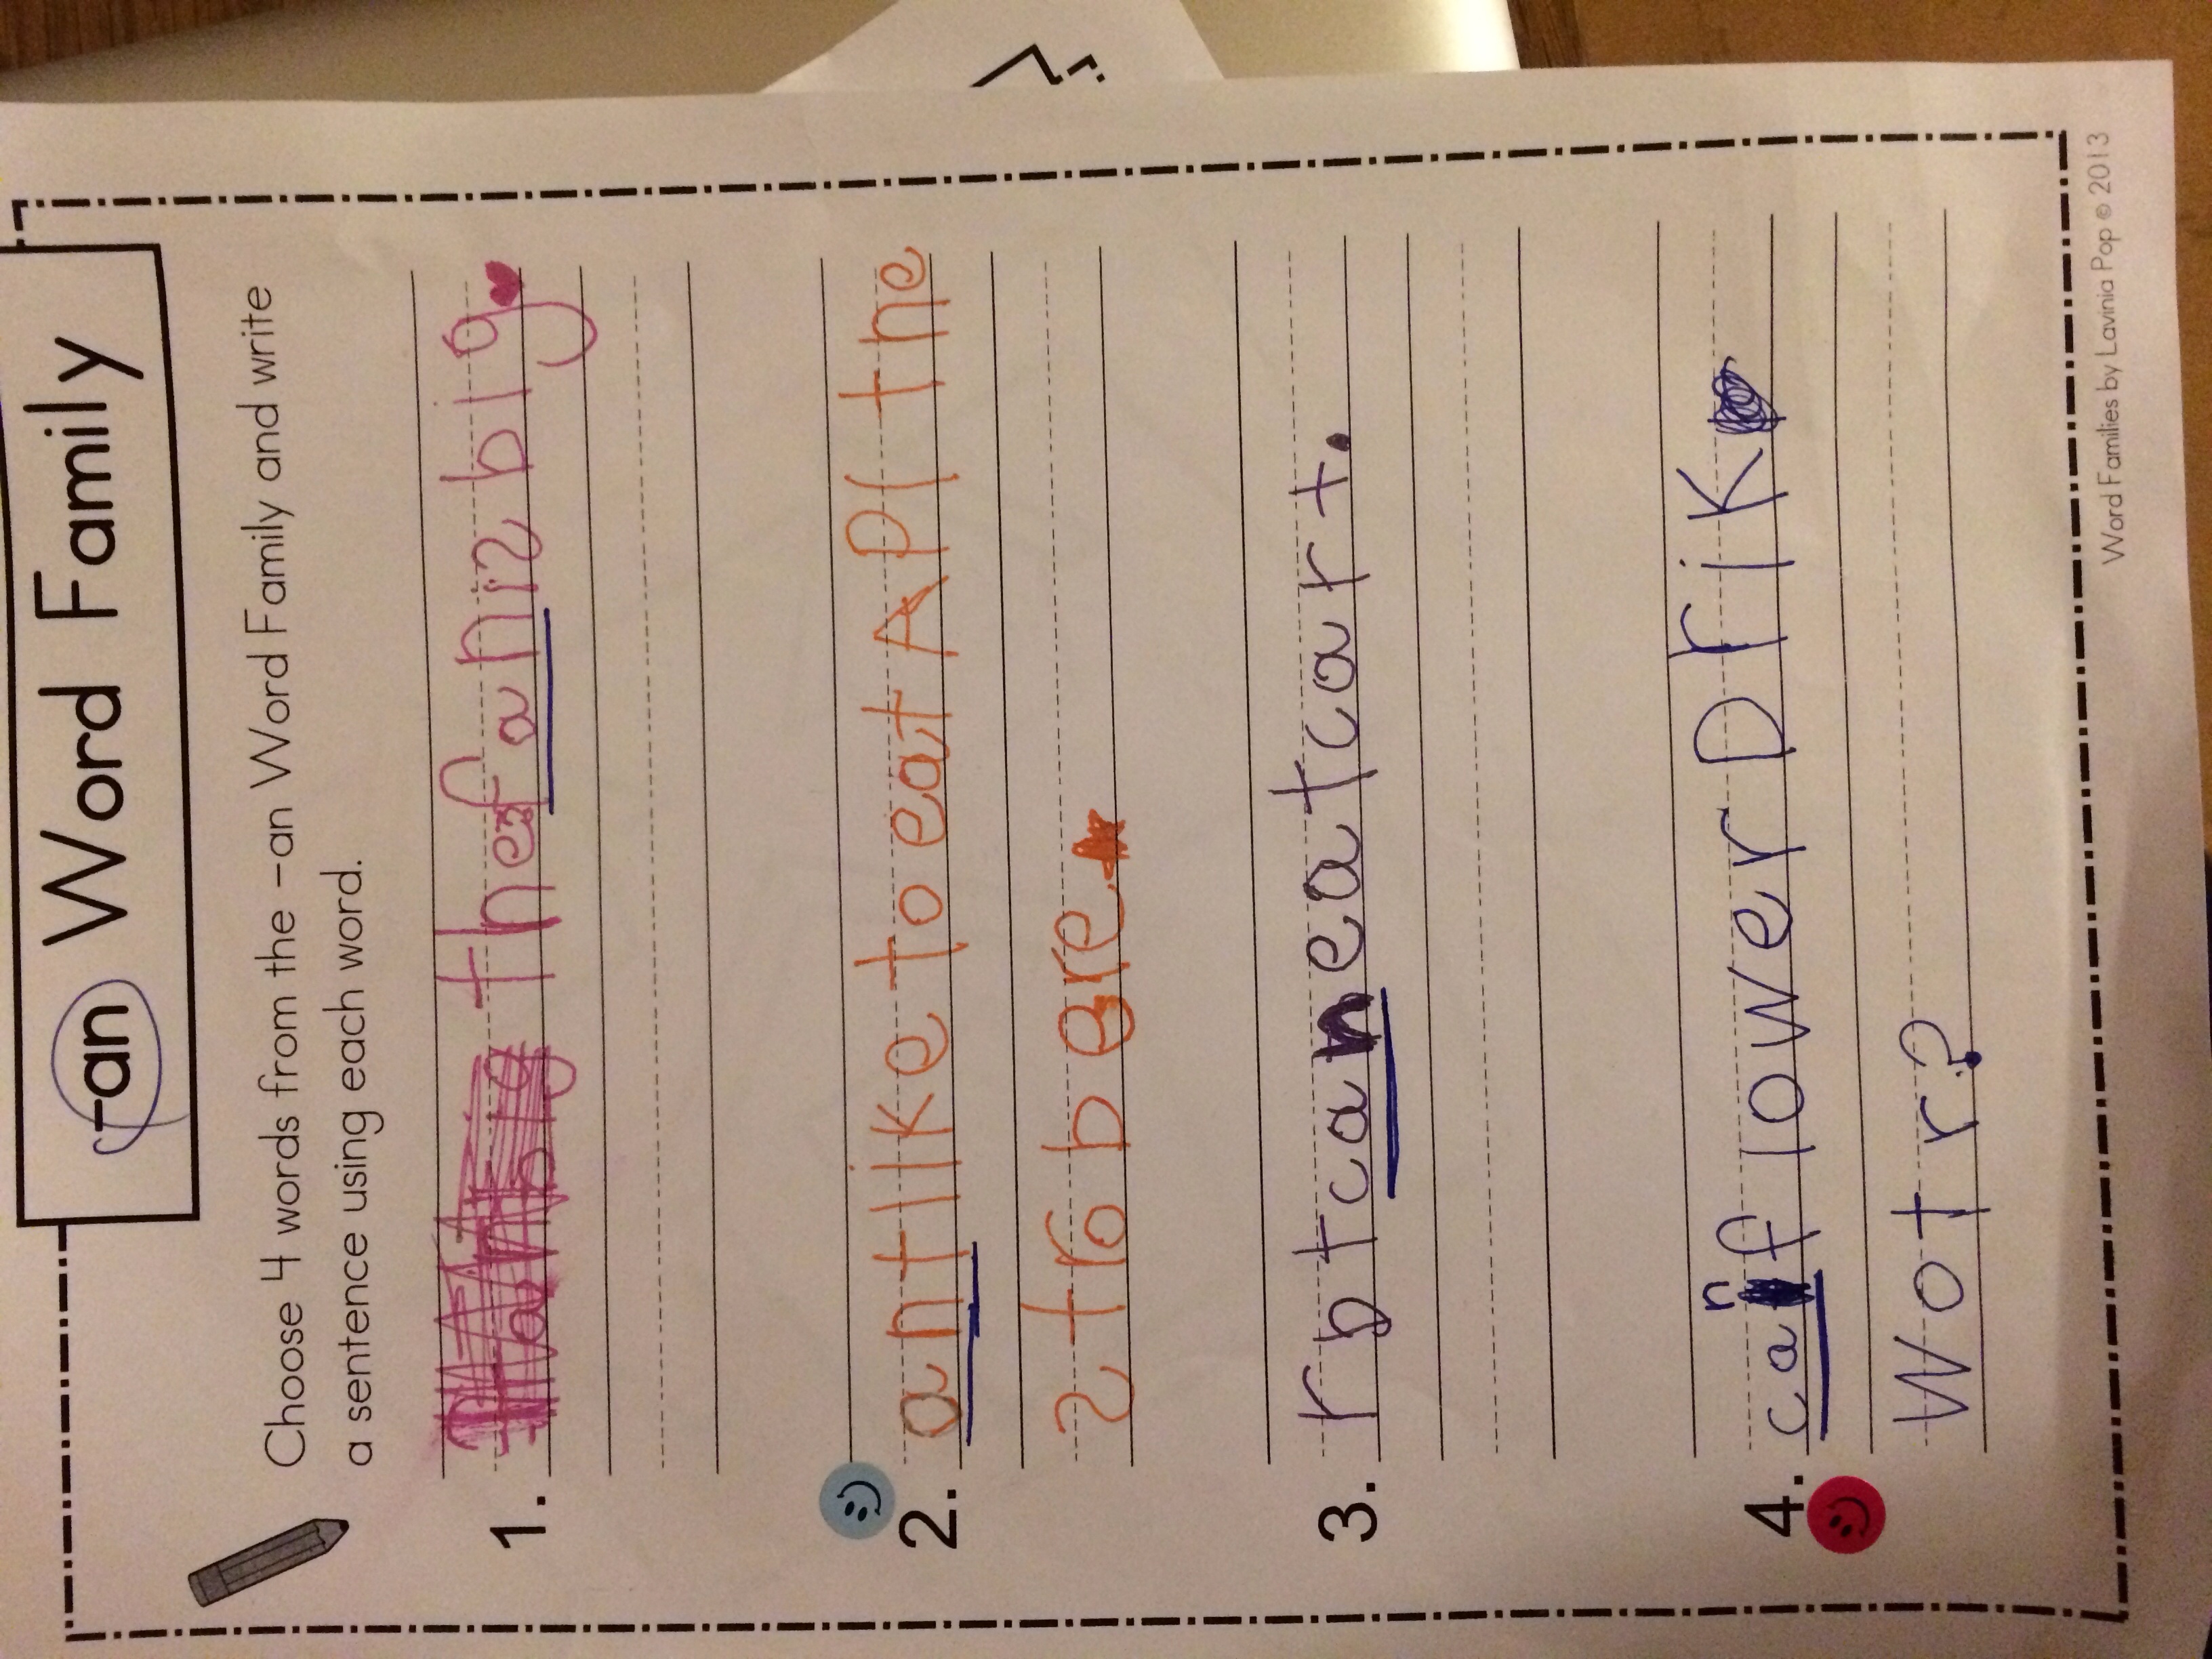 -an Word Family
Choose 4 words from the -an Word Family and write
a sentence using each word.
1. the fan is big
2. ant like to eat APl the
2 tro b ere
3. rbt can eat cart.
4. can flower Drik
Wotr?
Word Families by Lavinia Pop © 2013